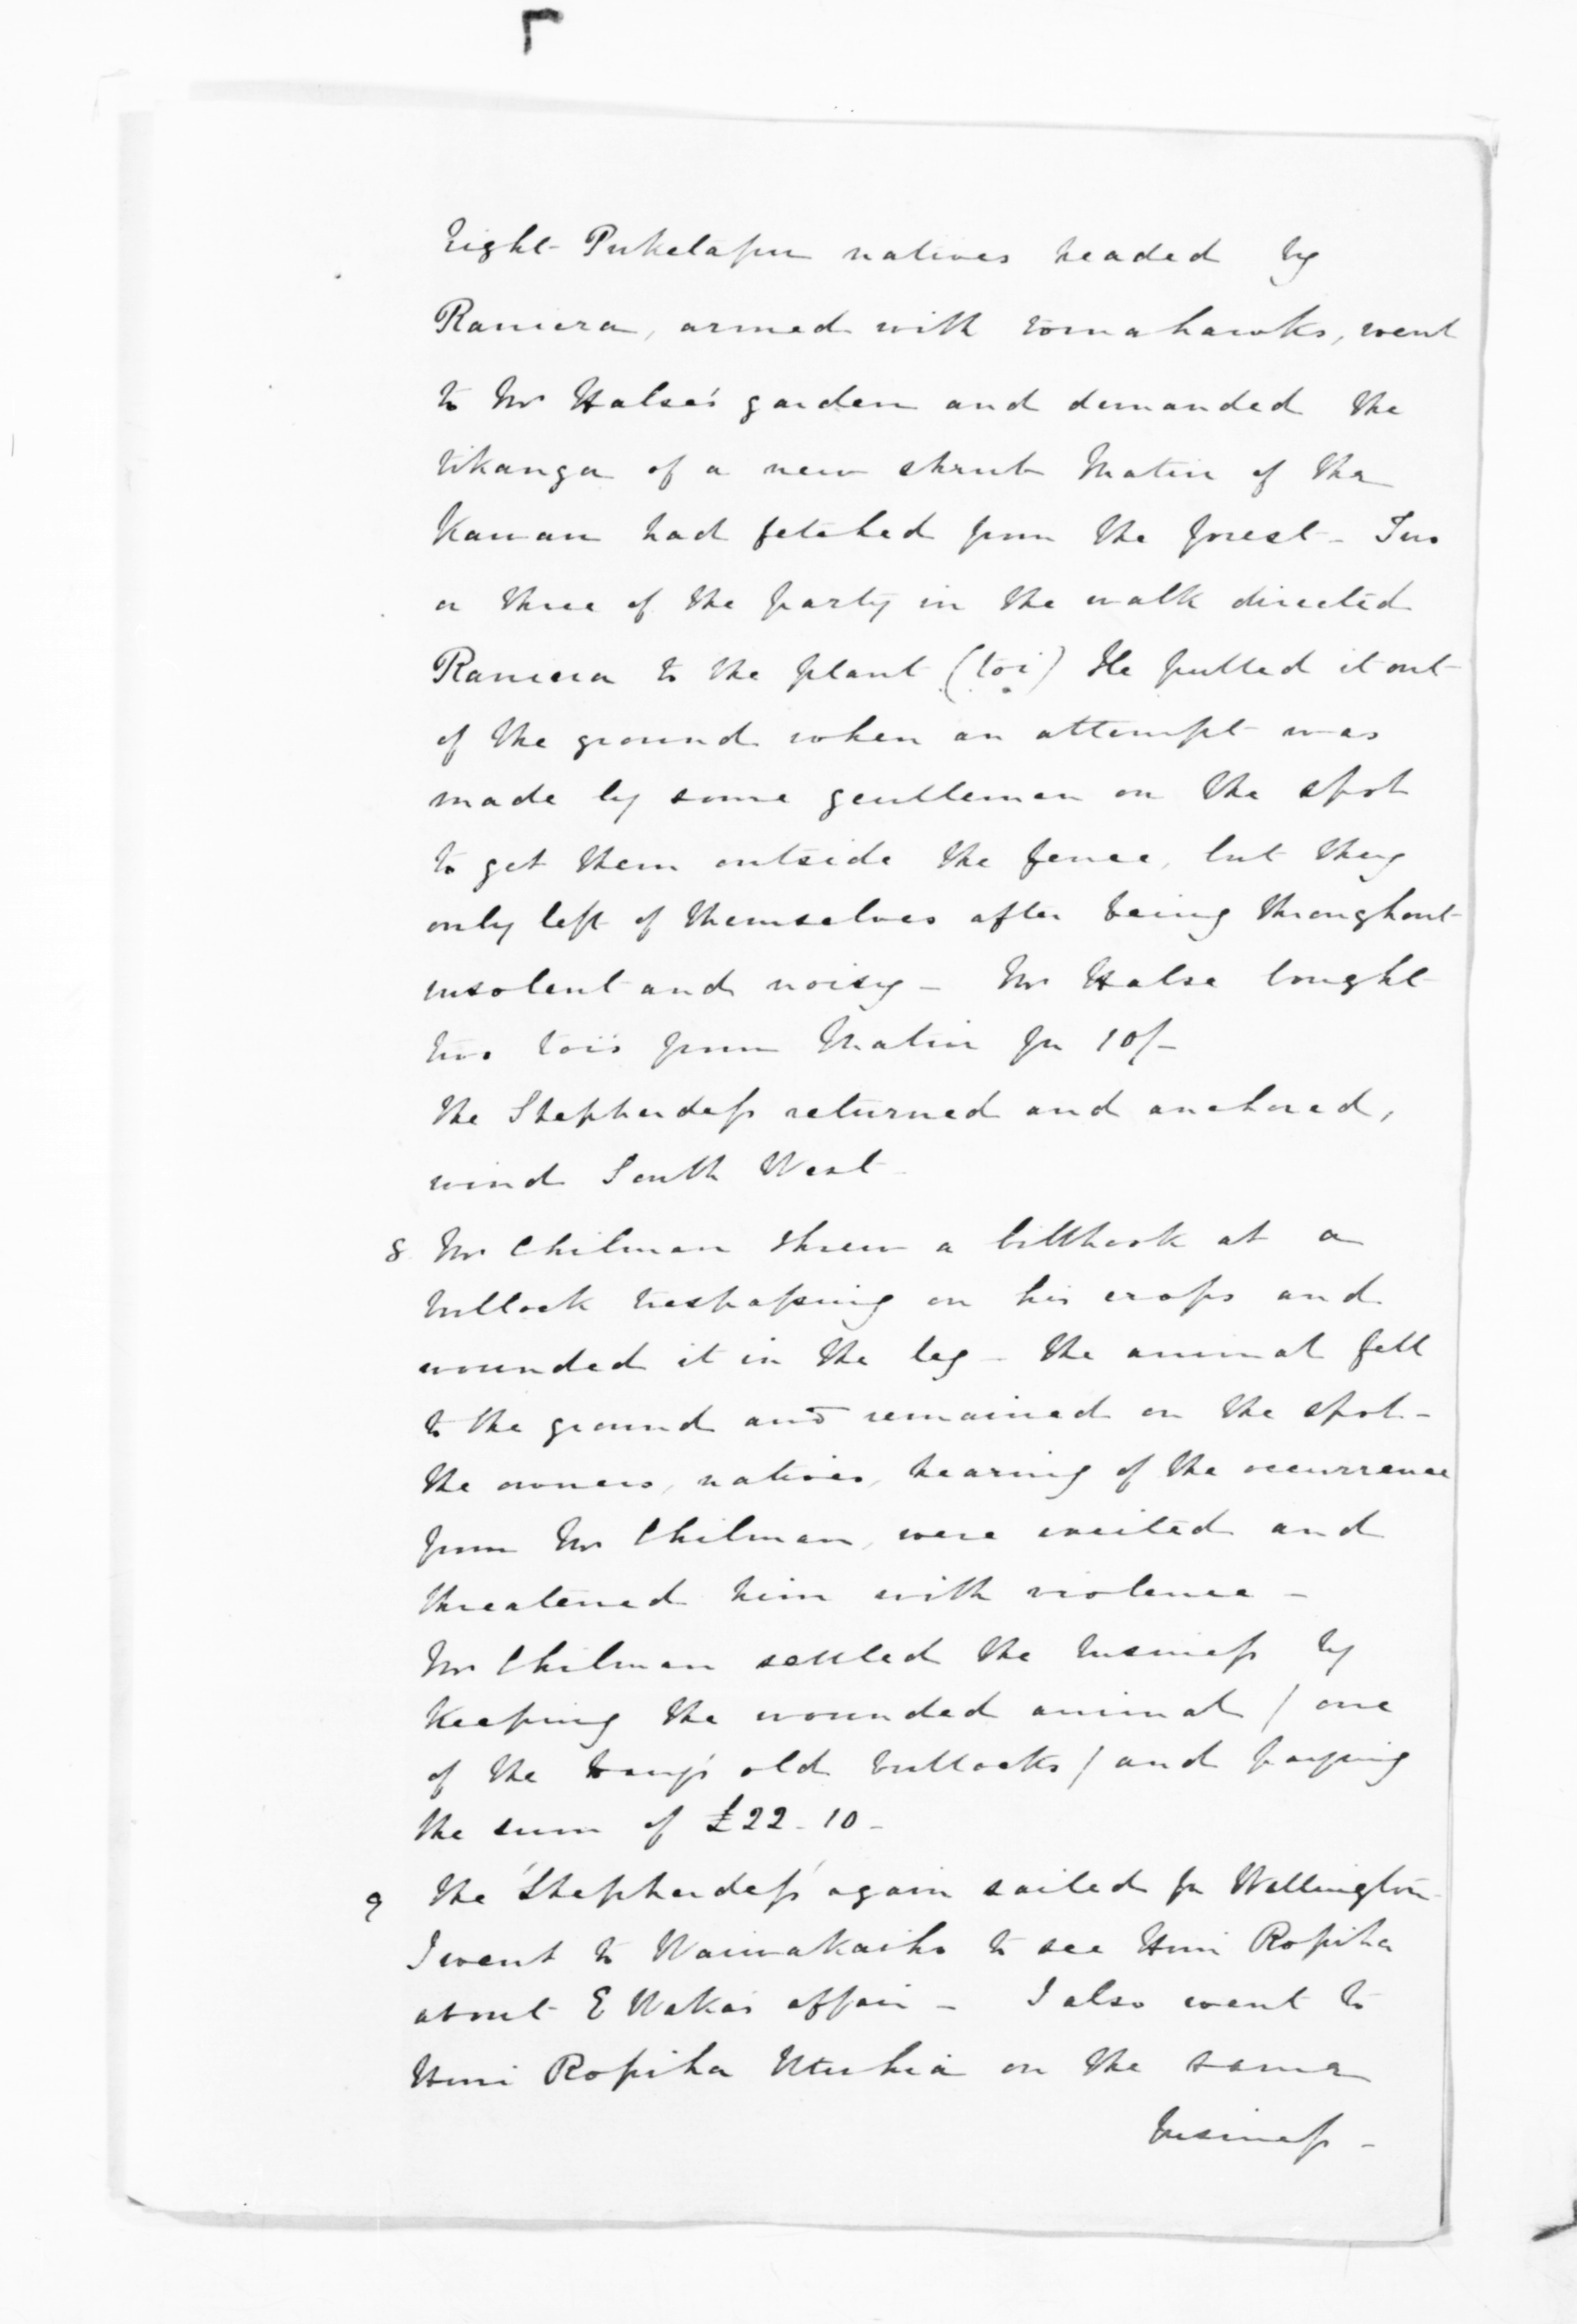 Eight Puketapu natives headed by
Raniera, armed with tomahawks, went
to Mr Halse's garden and demanded the
tikanga of a new shrub Matiu of the
Kawau had fetched from the forest - Two
or three of the party in the walk directed
Raniera to the plant (toi) He pulled it out
of the ground when an attempt was
made by some gentlemen on the spot
to get them outside the fence, but they
only left of themselves after being throughout
insolent and noisy - Mr Halse bought
two tois from Matiu for 10/-
The Shepherdess returned and anchored,
wind South West
8 Mr Chilman threw a billhook at a
bullock trespassing on his crops and
wounded it in the leg - The animal fell
to the ground and remained on the spot -
The owners, natives, hearing of the occurrence
from Mr Chilman, were excited and
threatened him with violence -
Mr Chilman settled the business by
keeping the wounded animal / one
of the old bullocks / and paying
the sum of £22-10-
9 The 'Shepherdess' again sailed for Wellington
I went to Waiwakaiho to see Honi Ropiha
about E Waka's affair - I also went to
Honi Ropiha Ntuhia on the same
business -